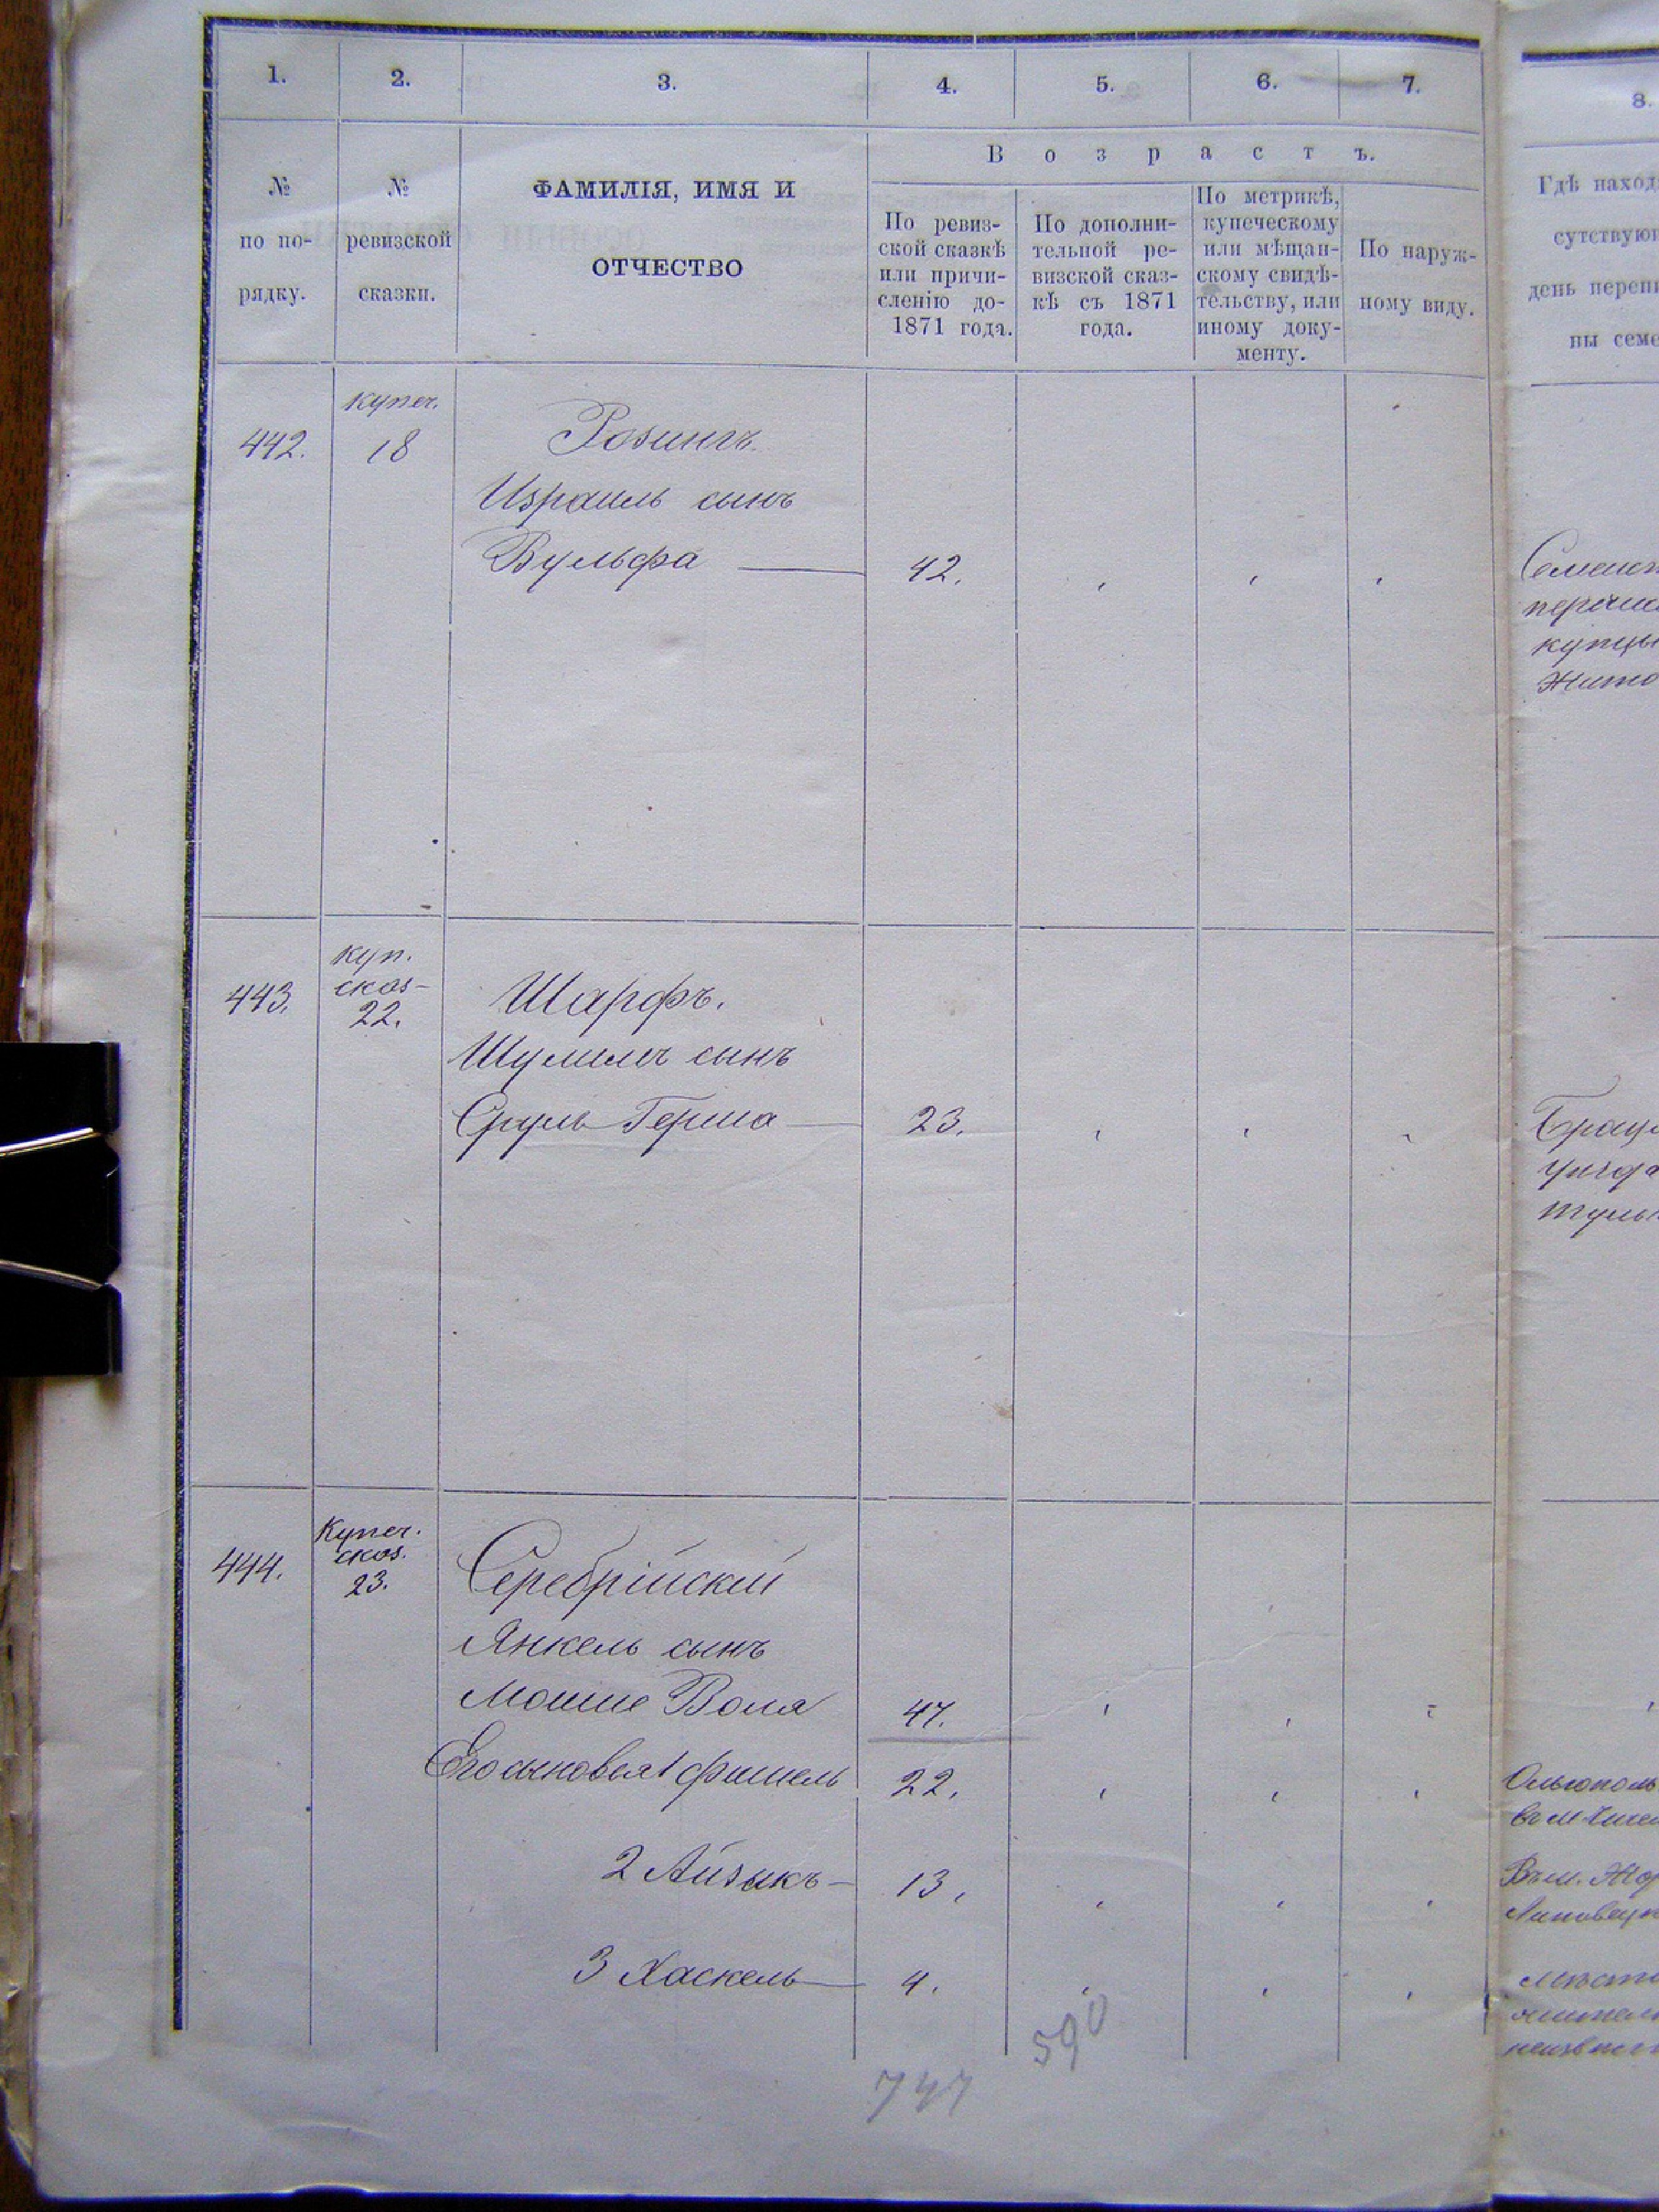 1. 2. 3. 4. 5. 6. 7. 8.
Возрастъ.
№ по по-рядку.
№ ревизской сказки.
ФАМИЛІЯ, ИМЯ И
ОТЧЕСТВО
По ревиз-
ской сказкѣ
или причи-
сленію до-
1871 года.
По дополни-
тельной ре-
визской сказ-
кѣ съ 1871
года.
По метрикѣ,
купеческому
или мѣщан-
скому свидѣ-
тельству, или
иному доку-
менту.
По наруж-
ному виду.
Гдѣ наход
сутствую
день переп
ны семе
442. купеч. 18 Розингъ
Израиль сынъ
Вульфа 42.
купцы
Жито
443. куп. сказ- 22. Шарфъ.
Шулимъ сынъ
Сруль Герша 23.
Брац
444. Купеч. сказ. 23. Серебрійскій
Янкель сынъ
Мошне Воля 47.
Его сыновья 1 Фишель 22.
Ольгополь
2 Айзыкъ 13.
Въ м.
Липовец
3 Хаскель 4.
590
747